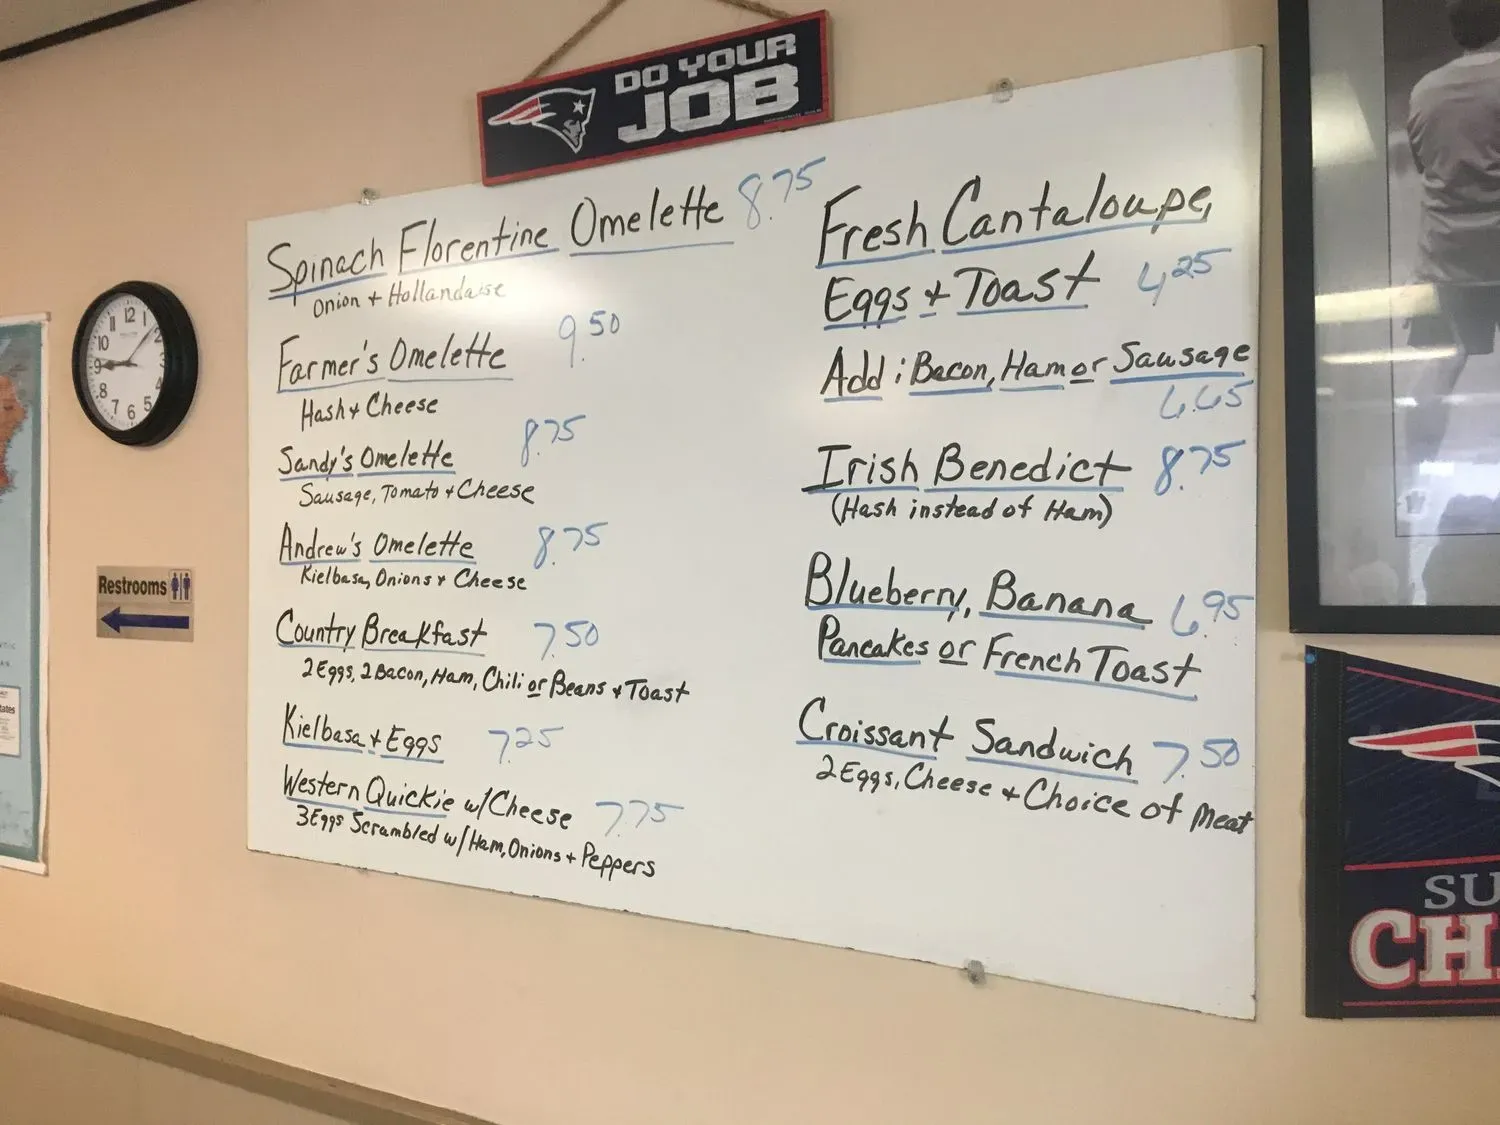 DO YOUR
JOB
Spinach Florentine Omelette 8.75
Onion + Hollandaise
Farmer's Omelette 9.50
Hash + Cheese
Sandy's Omelette 8.75
Sausage, Tomato + Cheese
Andrew's Omelette 8.75
Kielbasa, Onions + Cheese
Country Breakfast 7.50
2 Eggs, 2 Bacon, Ham, Chili or Beans + Toast
Kielbasa + Eggs 7.25
Western Quickie w/Cheese 7.75
3 Eggs Scrambled w/Ham, Onions + Peppers
Fresh Cantaloupe,
Eggs + Toast 4.25
Add: Bacon, Ham or Sausage
6.65
Irish Benedict 8.75
(Hash instead of Ham)
Blueberry, Banana 6.95
Pancakes or French Toast
Croissant Sandwich 7.50
2 Eggs, Cheese + Choice of Meat
12 1 2 3 4 5 6 7 8 9 10 11
Restrooms
SU
CH